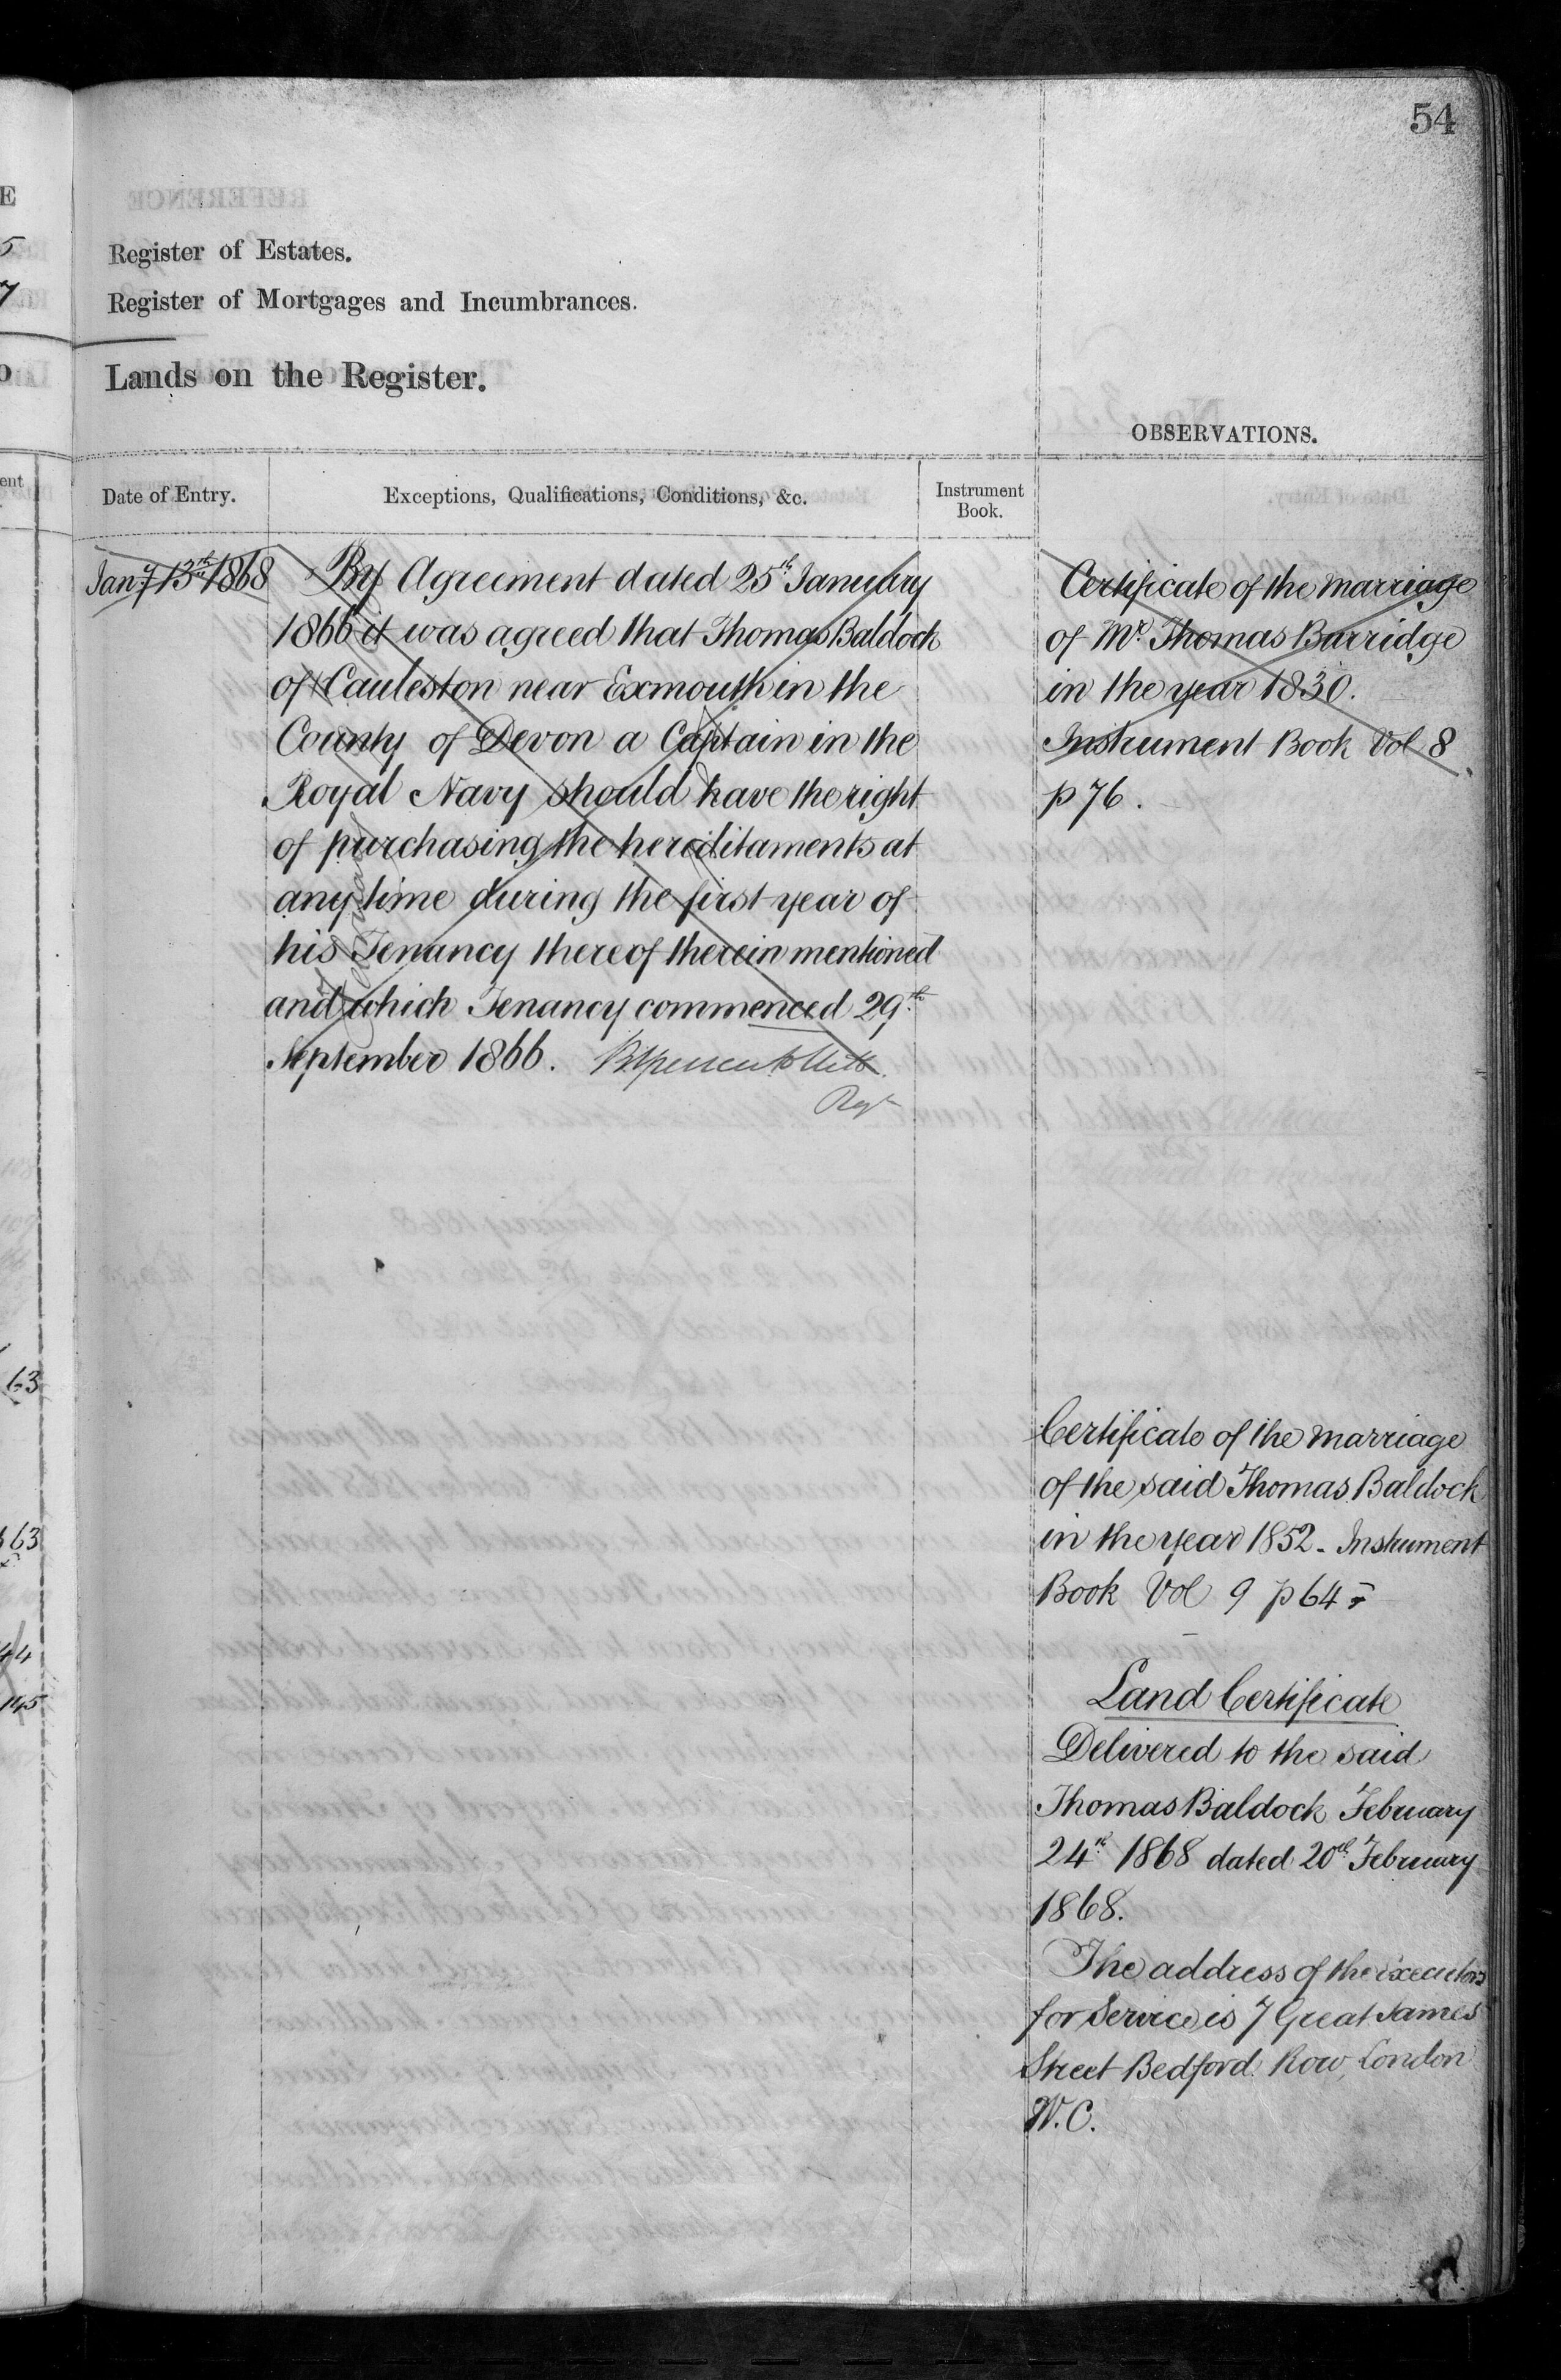 54
Register of Estates.
Register of Mortgages and Incumbrances.
Lands on the Register.
OBSERVATIONS.
Date of Entry.
Exceptions, Qualifications, Conditions, &c.
Instrument
Book.
Jany 13th 1868
By Agreement dated 25th January
1866 it was agreed that Thomas Baldock
of Cauleston near Exmouth in the
County of Devon a Captain in the
Royal Navy should have the right
of purchasing the hereditaments at
any time during the first year of
his Tenancy thereof therein mentioned
and which Tenancy commenced 29th
September 1866.
Regr
Certificate of the marriage
of Mr. Thomas Burridge
in the year 1830.
Instrument Book Vol 8
p 76.
Certificate of the marriage
of the said Thomas Baldock
in the year 1852. Instrument
Book Vol 9 p 64
Land Certificate
Delivered to the said
Thomas Baldock February
24th 1868 dated 20th February
1868.
The address of the executors
for Service is 7 Great James
Street Bedford Row, London
W.C.
E
5
7
ent
63
63
44
145